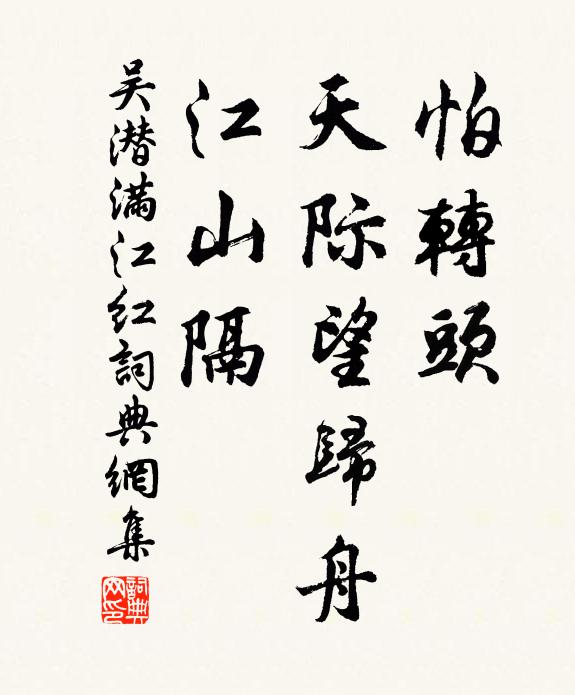 怕轉頭
天际望歸舟
江山隔
吴潜满江红詞典網集
詞典网印